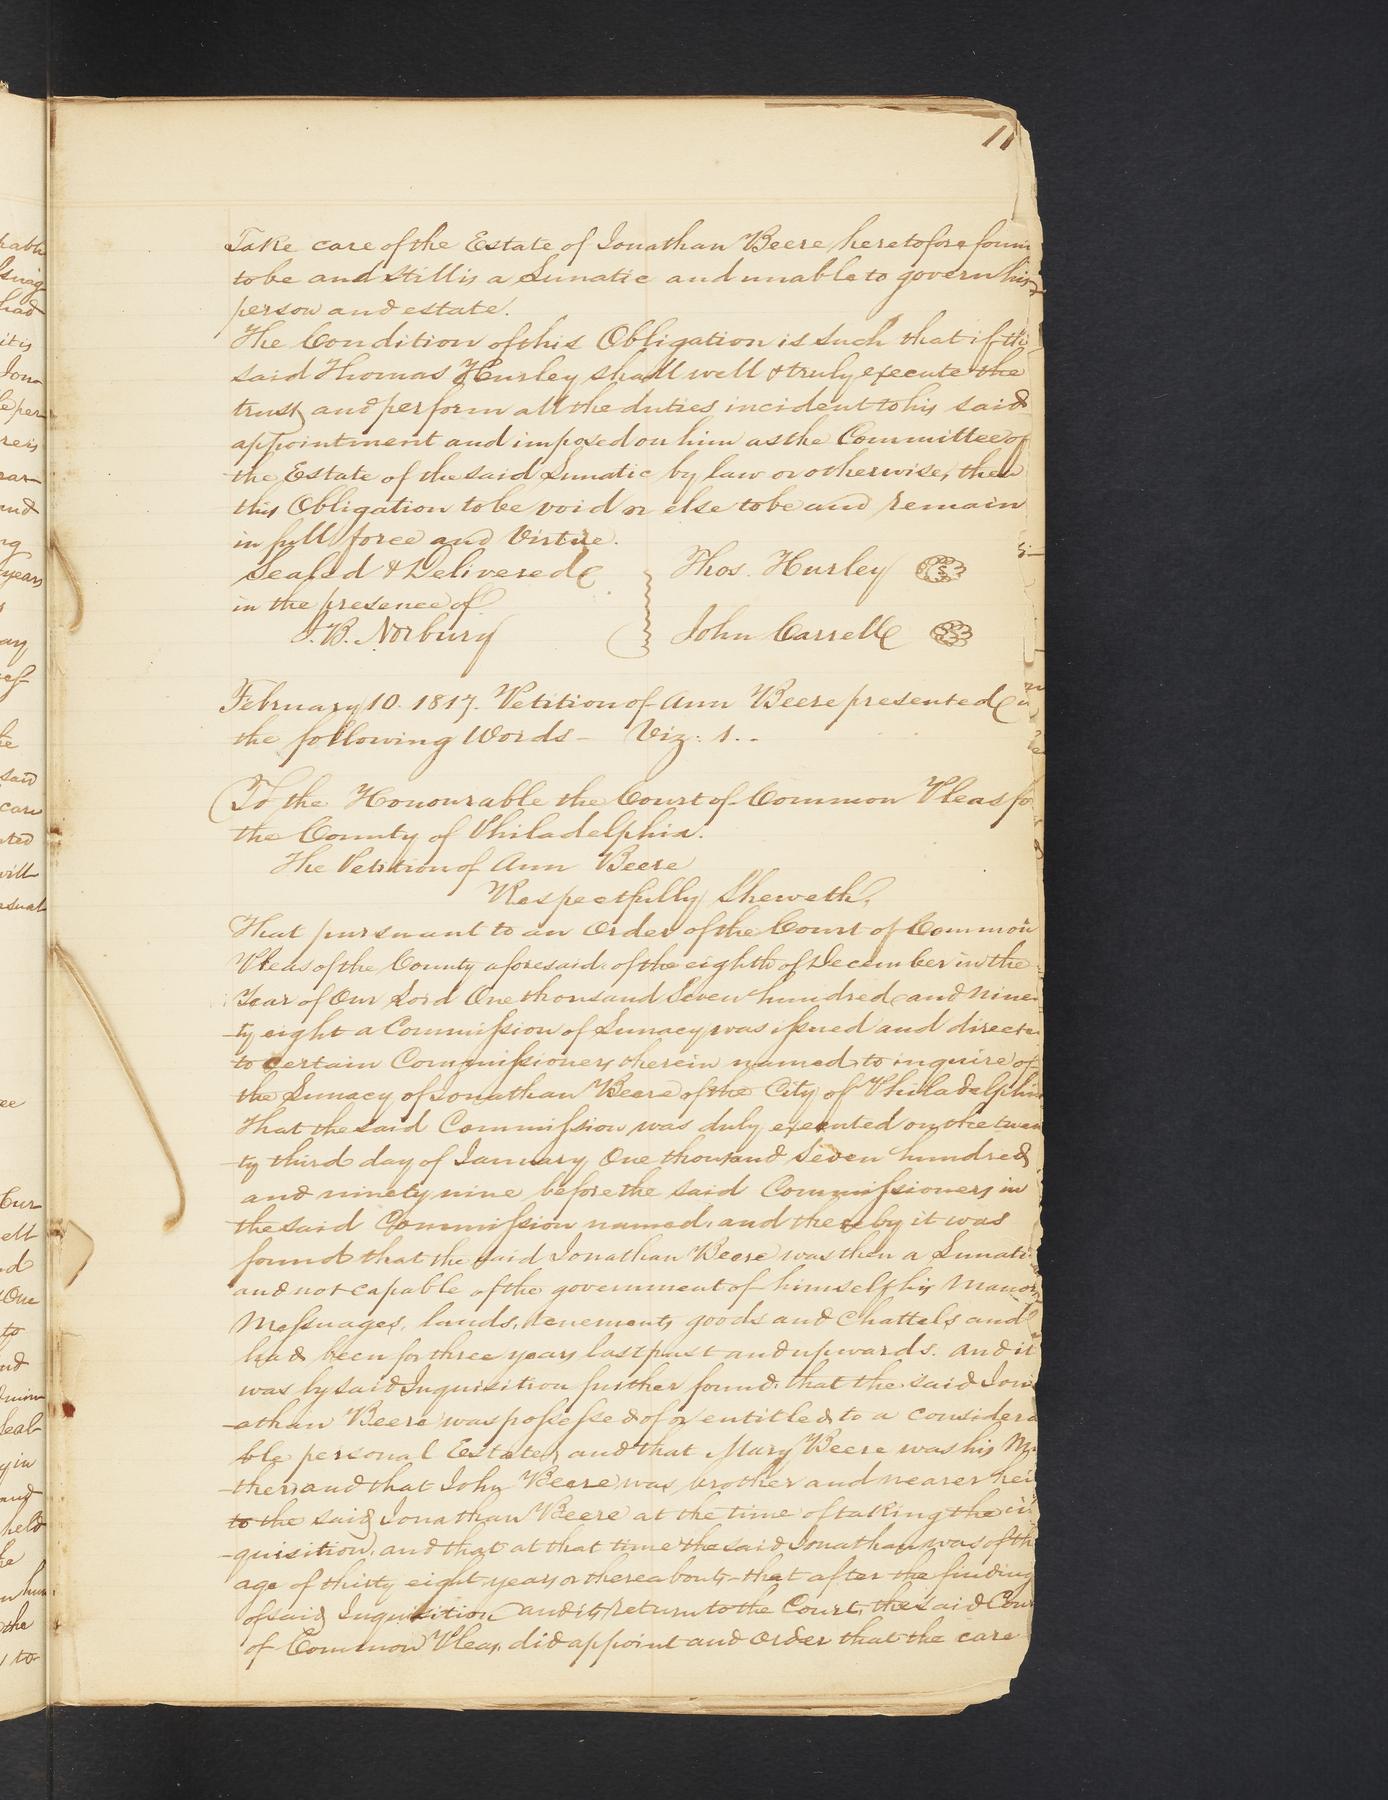 11
Take care of the Estate of Jonathan Beere heretofore foun
to be and still is a Lunatic and unable to govern his
person and estate.
The Condition of this Obligation is Such that if the
said Thomas Hurley shall well & truly execute the
trust and perform all the duties incident to his said
appointment and imposed on him as the Committee of
the Estate of the said Lunatic by law or otherwise, then
this Obligation to be void or else to be and remain
in full force and Virtue.
Sealed & Delivered
in the presence of
J. B. Norbury
Thos. Hurley
John Carrell
February 10. 1817. Petition of Ann Beere presented in
the following Words - Viz: 1. -
To the Honourable the Court of Common Pleas fo
the County of Philadelphia.
The Petition of Ann Beere
Respectfully Sheweth,
That pursuant to an Order of the Court of Common
Pleas of the County aforesaid of the eighth of December in the
Year of Our Lord One thousand Seven hundred and Nine
-ty eight a Commission of Lunacy was issued and directe
to certain Commissioners therein named to inquire of
the Lunacy of Jonathan Beere of the City of Philadelphia
That the said Commission was duly executed on the twen
-ty third day of January One thousand Seven hundred
and ninety nine before the said Commissioners in
the said Commission named, and thereby it was
found that the said Jonathan Beere was then a Lunati
and not capable of the government of himself his Manors
Messuages, lands, tenements goods and Chattels and
had been for three years last past and upwards. and it
was by said Inquisition further found that the said Jon
-athan Beere was possessed of or entitled to a considera
ble personal Estate, and that Mary Beere was his Mo
-ther and that John Beere was brother and nearer hei
to the said Jonathan Beere at the time of taking the in
-quisition, and that at that time the said Jonathan was of th
age of thirty eight years or thereabouts - that after the finding
of said Inquisition and its return to the Court, the said Cour
of Common Pleas, did appoint and order that the care